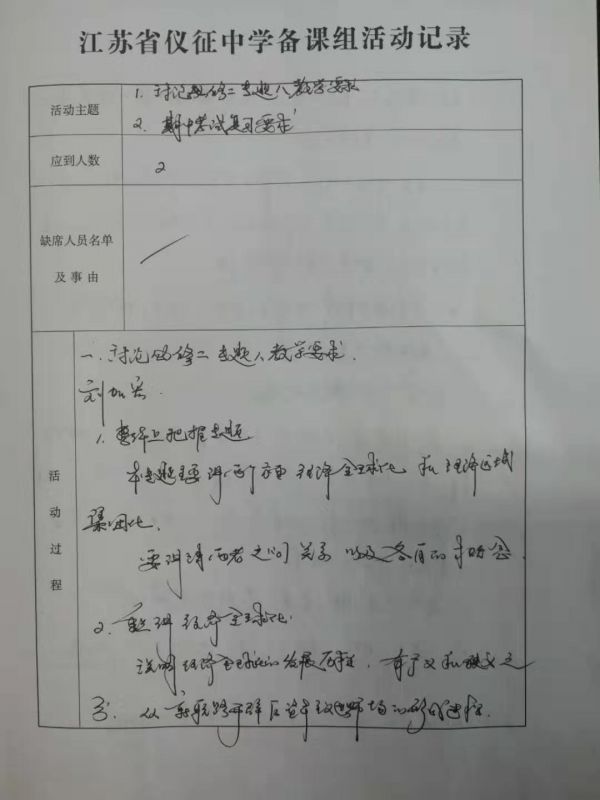 江苏省仪征中学备课组活动记录
活动主题
1. 讨论必修二专题八教学要求
2. 期中考试复习要求
应到人数
2
缺席人员名单
及事由
活动过程
一、讨论必修二专题八教学要求.
刘加宏.
1. 整体上把握专题
本专题主要讲两个方面 经济全球化 和 经济区域
集团化.
要讲清两者之间关系 以及各自的
2. 重点讲经济全球化.
说明经济全球化的发展历程, 有广义和狭义之
分. 从新航路开辟后资本主义世界市场的形成过程.